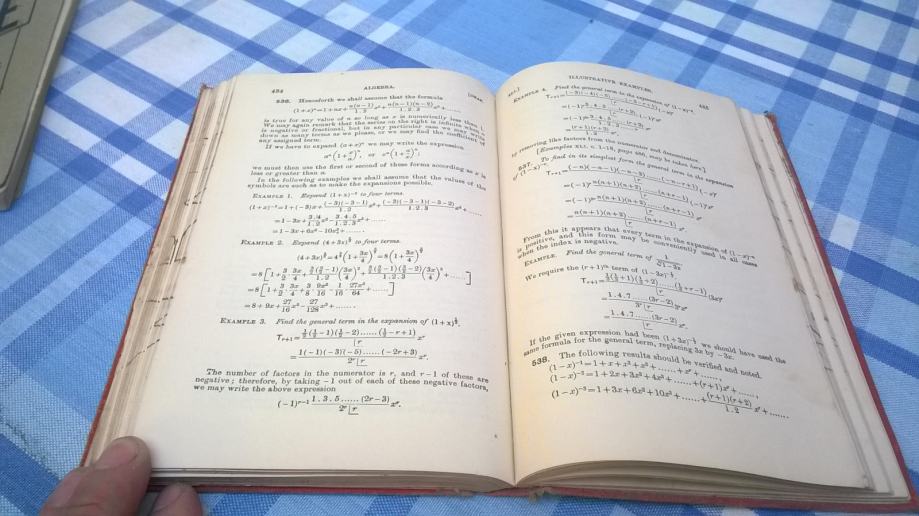 434 ALGEBRA.
536. Henceforth we shall assume that the formula
(1+x)ⁿ=1+nx+n(n−1)/1.2 x²+n(n−1)(n−2)/1.2.3 x³+......
is true for any value of n so long as x is numerically less than 1.
We may again remark that the series on the right is infinite when n
is negative or fractional, but in any particular case we may write
down as many terms as we please, or we may find the coefficient of
any assigned term.
If we have to expand (a+x)ⁿ we may write the expression
aⁿ(1+x/a)ⁿ, or xⁿ(1+a/x)ⁿ;
we must then use the first or second of these forms according as x is
less or greater than a.
In the following examples we shall assume that the values of the
symbols are such as to make the expansions possible.
EXAMPLE 1. Expand (1+x)⁻³ to four terms.
(1+x)⁻³=1+(−3)x+(−3)(−3−1)/1.2 x²+(−3)(−3−1)(−3−2)/1.2.3 x³+......
=1−3x+3.4/1.2 x²−3.4.5/1.2.3 x³+......
=1−3x+6x²−10x³+......
EXAMPLE 2. Expand (4+3x)^(3/2) to four terms.
(4+3x)^(3/2)=4^(3/2)(1+3x/4)^(3/2)=8(1+3x/4)^(3/2)
=8[1+3/2·3x/4+3/2(3/2−1)/1.2(3x/4)²+3/2(3/2−1)(3/2−2)/1.2.3(3x/4)³+......]
=8[1+3/2·3x/4+3/8·9x²/16−1/16·27x³/64+......]
=8+9x+27/16 x²−27/128 x³+......
EXAMPLE 3. Find the general term in the expansion of (1+x)^(1/2).
Tᵣ₊₁=1/2(1/2−1)(1/2−2)......(1/2−r+1)/|r xʳ
=1(−1)(−3)(−5)......(−2r+3)/2ʳ|r xʳ.
The number of factors in the numerator is r, and r−1 of these are
negative; therefore, by taking −1 out of each of these negative factors,
we may write the above expression
(−1)ʳ⁻¹ 1.3.5......(2r−3)/2ʳ|r xʳ.
ILLUSTRATIVE EXAMPLES. 435
EXAMPLE 4. Find the general term in the expansion of (1−x)⁻³.
Tᵣ₊₁=(−3)(−4)(−5)......(−3−r+1)/|r (−x)ʳ
=(−1)ʳ 3.4.5......(r+2)/|r (−1)ʳxʳ
=(−1)²ʳ 3.4.5......(r+2)/|r xʳ
=(r+1)(r+2)/1.2 xʳ
by removing like factors from the numerator and denominator.
[Examples XLI. c. 1-18, page 438, may be taken here.]
537. To find in its simplest form the general term in the expansion
of (1−x)⁻ⁿ.
Tᵣ₊₁=(−n)(−n−1)(−n−2)......(−n−r+1)/|r (−x)ʳ
=(−1)ʳ n(n+1)(n+2)......(n+r−1)/|r (−1)ʳxʳ
=(−1)²ʳ n(n+1)(n+2)......(n+r−1)/|r xʳ
=n(n+1)(n+2)......(n+r−1)/|r xʳ.
From this it appears that every term in the expansion of (1−x)⁻ⁿ
is positive, and this form may be conveniently used in all cases
when the index is negative.
EXAMPLE. Find the general term of
We require the (r+1)ᵗʰ term of
Tᵣ₊₁=1/3(1/3+1)(1/3+2)......(1/3+r−1)/|r (3x)ʳ
=1.4.7......(3r−2)/3ʳ|r 3ʳxʳ
=1.4.7......(3r−2)/|r xʳ.
If the given expression had been (1+3x)^(−1/3) we should have used the
same formula for the general term, replacing 3x by −3x.
538. The following results should be verified and noted.
(1−x)⁻¹=1+x+x²+x³+......+xʳ+......,
(1−x)⁻²=1+2x+3x²+4x³+......+(r+1)xʳ+......,
(1−x)⁻³=1+3x+6x²+10x³+......+(r+1)(r+2)/1.2 xʳ+......